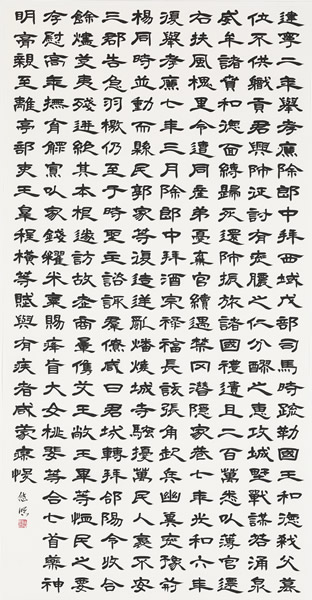 建寧二年舉孝廉除郎中拜西域戊部司馬時疏勒國王和德弒父篡
位不供職貢君興師征討有兗膿之仁分醪之惠攻城墅戰謀若涌泉
威牟諸賁和德面縛歸死還師振旅諸國禮遺且二百萬悉以薄官遷
右扶風槐里令遭同產弟憂棄官續遇禁冈潛隱家巷七年光和六年
復舉孝廉七年三月除郎中拜酒泉祿福長訞張角起兵幽冀兗豫荊
楊同時並動而縣民郭家等復造逆亂燔燒城寺騷擾萬民人裹不安
三郡告急羽檄仍至于時聖主諮諏群僚咸曰君哉轉拜郃陽令收合
餘燼芟夷殘迸絕其本根遂訪故老商量儁艾王敞王畢等恤民之要
存慰高年撫育鰥寡以家錢糴米粟賜癃盲大女桃婓等合七首藥神
明膏親至離亭部吏王皋程橫等賦與有疾者咸蒙瘳悛